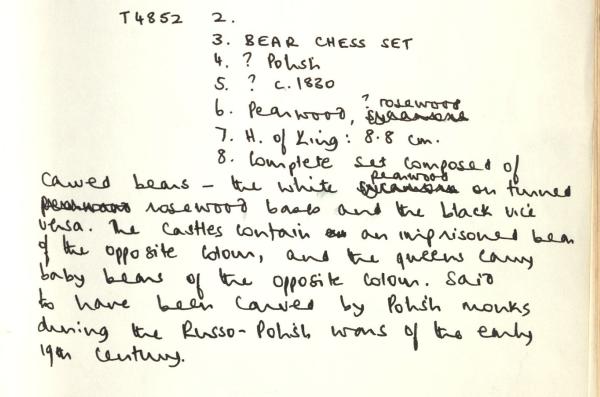 T4852 2.
3. BEAR CHESS SET
4. ? Polish
5. ? c. 1830
6. Pearwood, ? rosewood
7. H. of King: 8.8 cm.
8. Complete set composed of
carved bears – the white pearwood on turned
rosewood bases and the black vice
versa. The castles contain an imprisoned bear
of the opposite colour, and the queens carry
baby bears of the opposite colour. Said
to have been carved by Polish monks
during the Russo-Polish wars of the early
19th century.